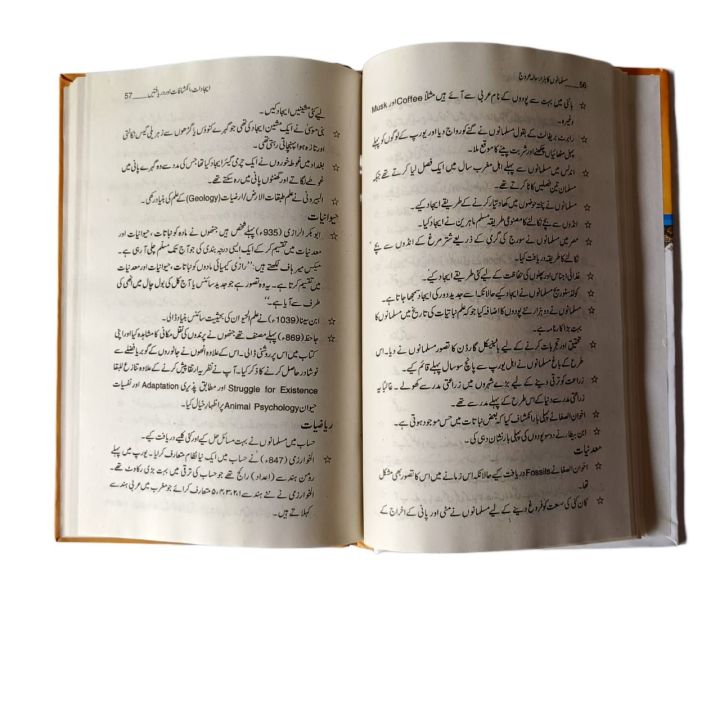 56 ___ مسلمانوں کا ہزار سالہ عروج
☆ باٹنی میں بہت سے پودوں کے نام عربی سے آئے ہیں مثلاً Coffee اور Musk
وغیرہ۔
☆ رابرٹ بریفالٹ کے بقول مسلمانوں نے گنے کو رواج دیا اور یورپ کے لوگوں کو پہلی
پہل مٹھائیاں چکھنے اور شربت پینے کا موقع ملا۔
☆ اندلس میں مسلمانوں سے پہلے اہل مغرب سال میں ایک فصل لیا کرتے تھے جبکہ
مسلمان تین فصلیں کاٹا کرتے تھے۔
☆ مسلمانوں نے پختہ حوضوں میں کھاد تیار کرنے کے طریقے ایجاد کیے۔
☆ انڈوں سے بچے نکالنے کا مصنوعی طریقہ مسلم ماہرین نے ایجاد کیا۔
☆ مصر میں مسلمانوں نے سورج کی گرمی کے ذریعے شتر مرغ کے انڈوں سے بچے
نکالنے کا طریقہ دریافت کیا۔
☆ غذائی اجناس اور پھلوں کی حفاظت کے لیے کئی طریقے ایجاد کیے۔
☆ کولڈ سٹوریج مسلمانوں نے ایجاد کیے حالانکہ اسے جدید دور کی ایجاد سمجھا جاتا ہے۔
☆ مسلمانوں نے دو ہزار نئے پودوں کا اضافہ کیا جو کہ علم نباتیات کی تاریخ میں مسلمانوں کا
بہت بڑا کارنامہ ہے۔
☆ تحقیق اور تجربات کرنے کے لیے باٹینیکل گارڈن کا تصور مسلمانوں نے دیا۔ اس
طرح کے باغ مسلمانوں نے اہل یورپ سے پانچ سو سال پہلے قائم کیے۔
☆ زراعت کو ترقی دینے کے لیے بڑے شہروں میں زراعتی مدرسے کھولے۔ غالباً یہ
زراعتی مدرسے دنیا کے اس طرح کے پہلے مدرسے تھے۔
☆ اخوان الصفا نے پہلی بار انکشاف کیا کہ بعض نباتات میں حس موجود ہوتی ہے۔
☆ ابن بیطار نے دو سو پودوں کی پہلی بار نشان دہی کی۔
معدنیات
☆ اخوان الصفا نے Fossils دریافت کیے حالانکہ اس زمانے میں اس کا تصور بھی مشکل
تھا۔
☆ کان کنی کی صنعت کو فروغ دینے کے لیے مسلمانوں نے مٹی اور پانی کے اخراج کے
ایجادات، انکشافات اور دریافتیں ___ 57
لیے کئی مشینیں ایجاد کیں۔
☆ بنی موسیٰ نے ایک مشین ایجاد کی تھی جو گہرے کنوؤں یا گڑھوں سے زہریلی گیس نکالتی
اور تازہ ہوا پہنچاتی رہتی تھی۔
☆ بغداد میں غوطہ خوروں نے ایک چرمی گیئر ایجاد کیا تھا جس کی مدد سے وہ گہرے پانی میں
غوطے لگاتے اور گھنٹوں پانی میں رہ سکتے تھے۔
☆ البیرونی نے علم طبقات الارض/ارضیات (Geology) کے علم کی بنیاد رکھی۔
حیوانیات
☆ ابوبکر الرازی (935ء) پہلا شخص ہیں جنھوں نے مادہ کو نباتات، حیوانیات اور
معدنیات میں تقسیم کر کے ایک ایسی درجہ بندی کی جو آج تک مسلّم چلی آ رہی ہے۔
میکس میر ہاف لکھتے ہیں: ’’رازی کیمیائی مادوں کو نباتات، حیوانیات اور معدنیات
میں تقسیم کرتا ہے۔ یہ وہ تصور ہے جو جدید سائنس یا آج کل کی بول چال میں انھی کی
طرف سے آیا ہے۔‘‘
☆ ابن سینا (1039ء) نے علم الحیوان کی بحیثیت سائنس بنیاد ڈالی۔
☆ جاحظ (869ء) پہلے مصنف تھے جنھوں نے پرندوں کی نقل مکانی کا مشاہدہ کیا اور اپنی
کتاب میں اس پر روشنی ڈالی۔ اس کے علاوہ انھوں نے جانوروں کے گوبر یا فضلے سے
نوشادر حاصل کرنے کا ذکر کیا۔ آپ نے نظریہ ارتقا پیش کرنے کے علاوہ تنازع للبقا
Struggle for Existence اور مطابق پذیری Adaptation اور نفسیات
حیوان Animal Psychology پر اظہار خیال کیا۔
ریاضیات
☆ حساب میں مسلمانوں نے بہت مسائل حل کیے اور کئی کلیے دریافت کیے۔
☆ الخوارزمی (847ء) نے حساب میں ایک نیا نظام متعارف کرایا۔ یورپ میں پہلے
رومن ہندسے (اعداد) رائج تھے جو حساب کی ترقی میں بہت بڑی رکاوٹ تھے۔
الخوارزمی نے نئے ہندسے ۱،۲،۳،۴،۵ متعارف کرائے جو مغرب میں عربی ہندسے
کہلاتے ہیں۔